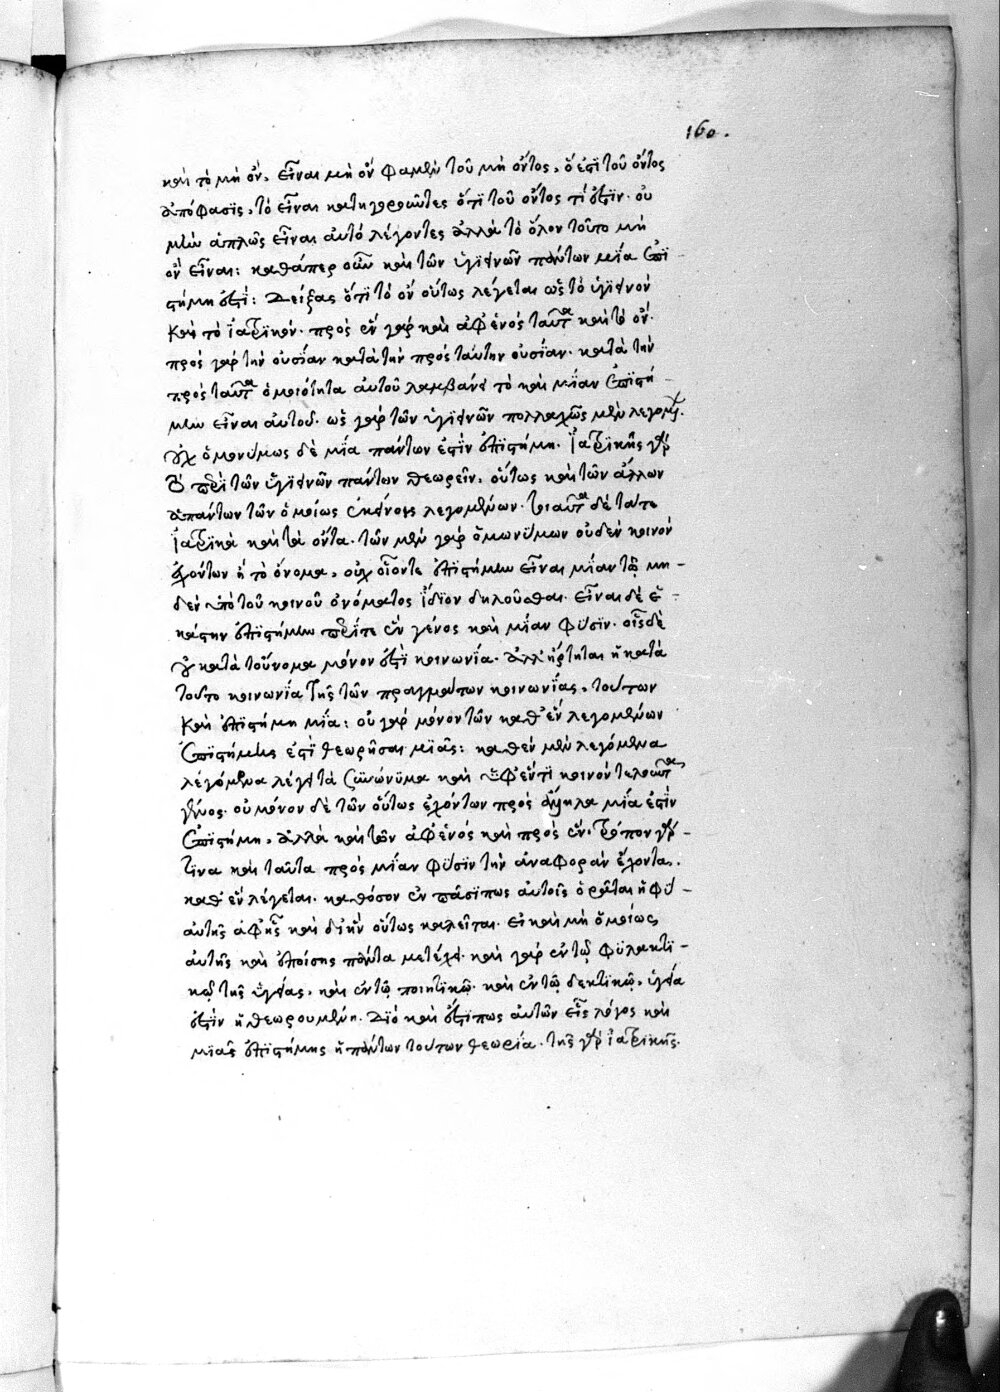 160.
καὶ τὸ μὴ ὄν, εἶναι μὴ ὄν φαμὲν τοῦ μὴ ὄντος, ὅ ἐστι τοῦ ὄντος
ἀπόφασις, τὸ εἶναι κατηγοροῦντες ὅτι τοῦ ὄντος τί ἐστϊν. οὐ
μὴν ἁπλῶς εἶναι αὐτό λέγοντες ἀλλὰ τὸ ὅλον τοῦτο μὴ
ὂν εἶναι: καθάπερ οὖν καὶ τῶν ὑγιεινῶν πάντων μία ἐπι-
στήμη ἐστΐ: Δείξας ὅτι τὸ ὂν οὕτως λέγεται ὡς τὸ ὑγιεινὸν
καὶ τὸ ἰατρϊκόν. πρὸς ἓν γὰρ καὶ ἀφ' ἑνός ταῦτα καὶ τὸ ὄν.
πρὸς γὰρ τὴν οὐσίαν κατὰ τὴν πρὸς ταύτην οὐσΐαν. κατὰ τὴν
πρὸς ταῦτα ὁμοιότητα αὐτοῦ λαμβάνει τὸ καὶ μΐαν ἐπϊστή-
μην εἶναι αὐτοῦ. ὡς γὰρ τῶν ὑγιεινῶν πολλαχῶς μὲν λεγομένων.
οὐχ ὁμονύμως δὲ μΐα πάντων ἐστὶν ἐπϊστήμη. ἰατρϊκῆς γὰρ
τὸ περὶ τῶν ὑγϊεινῶν πάντων θεωρεῖν, οὕτως καὶ τῶν ἄλλων
ἁπάντων τῶν ὁμοίως ἐκείνοις λεγομένων. τοιαῦτα δὲ τά τε
ἰατρϊκὰ καὶ τὰ ὄντα. τῶν μὲν γὰρ ὁμωνύμων οὐδὲν κοινὸν
ἐχόντων ἢ τὸ ὄνομα, οὐχ οἷόντε ἐπϊστήμην εἶναι μΐαν τῷ μη-
δὲν ὑπὸ τοῦ κοινοῦ ὀνόματος ἴδϊον δηλοῦσθαι. εἶναι δὲ ἑ-
κάστην ἐπϊστήμην περί τε ἓν γένος καὶ μΐαν φύσϊν. οἷς δὲ
οὐ κατὰ τοὔνομα μόνον ἐστὶ κοινωνία. ἀλλ' ἤρτηται ἡ κατὰ
τοῦτο κοινωνΐα τῆς τῶν πραγμάτων κοινωνΐας, τούτων
καὶ ἐπϊστήμη μΐα: οὐ γὰρ μόνον τῶν καθ' ἓν λεγομένων
ἐπϊστήμης ἐστὶ θεωρῆσαι μϊᾶς: καθ' ἓν μὲν λεγόμενα
λέγει τὰ συνώνϋμα καὶ ὑφ' ἕν τι κοινὸν τελοῦντα
γένος. οὐ μόνον δὲ τῶν οὕτως ἐχόντων πρὸς ἄλληλα μΐα ἐστὶν
ἐπϊστήμη, ἀλλὰ καὶ τῶν ἀφ' ἑνός καὶ πρὸς ἕν. τρόπον γάρ-
τϊνα καὶ ταῦτα πρὸς μΐαν φύσϊν τὴν ἀναφορὰν ἔχοντα,
καθ' ἓν λέγεται. καθόσον ἐν πᾶσί πως αὐτοῖς ὁρᾶται ἡ φύ-
αὐτῆς ἀφ' ἧς καὶ δι' ἣν οὕτως καλεῖται. εἰ καὶ μὴ ὁμοίως
αὐτῆς καὶ ἐπΐσης πάντα μετέχει. καὶ γὰρ ἐν τῷ φϋλακτϊ-
κῷ τῆς ὑγείας, καὶ ἐν τῷ ποιητϊκῷ. καὶ ἐν τῷ δεκτϊκῷ, ὑγεία
ἐστὶν ἡ θεωρουμένη. Διό καὶ ἔστί πως αὐτῶν εἷς λόγος καὶ
μϊᾶς ἐπϊστήμης ἡ πάντων τούτων θεωρία. τῆς γὰρ ἰατρϊκῆς.